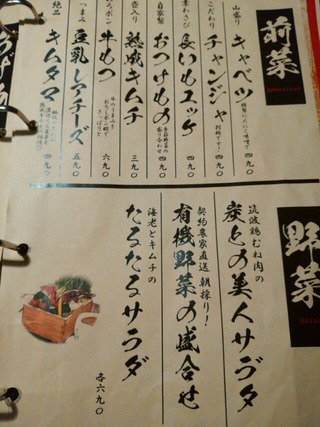 前菜
山盛り キャベツ 特製にんにく味噌で 四九〇
こだわり チャンジャ 別格です! 四九〇
麦わさび 長いもユッケ 四九〇
自家製 おつけもの 四九〇
壺入り 熟成キムチ 三九〇
おろポン 牛もつ 六九〇
つまみ 豆乳レアチーズ 五九〇
絶品 キムタマ 四九〇
野菜
筑波鶏むね肉の
炭との美人サラダ
契約農家直送 朝採り!
有機野菜の盛合せ
海老とキムチの
たるたるサラダ
各六九〇